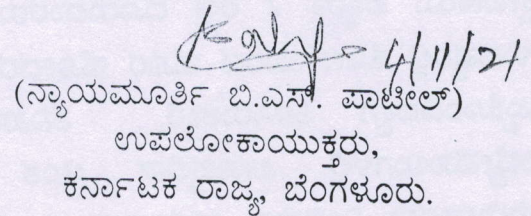 4/11/21
(ನ್ಯಾಯಮೂರ್ತಿ ಬಿ.ಎಸ್. ಪಾಟೀಲ್)
ಉಪಲೋಕಾಯುಕ್ತರು,
ಕರ್ನಾಟಕ ರಾಜ್ಯ, ಬೆಂಗಳೂರು.